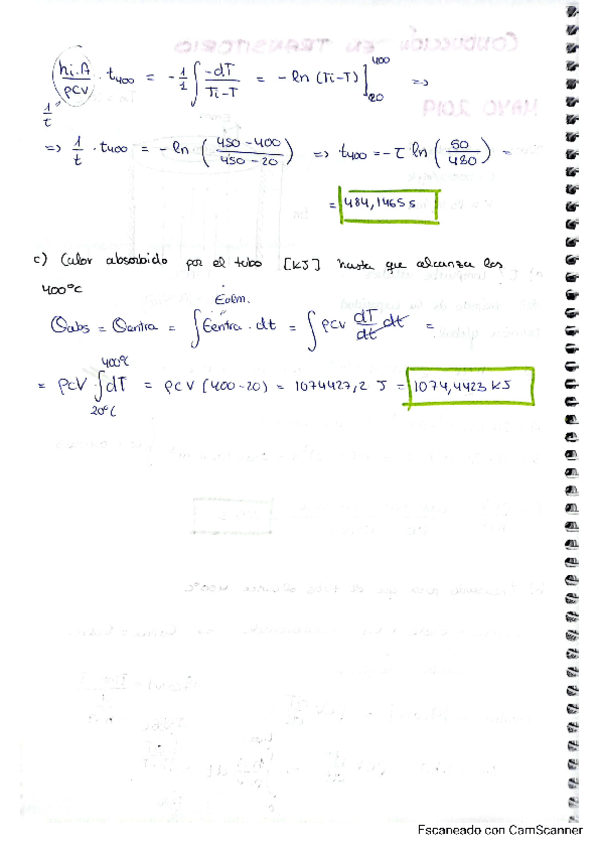 hi.A/ρcV · t400 = -1/1 ∫ -dT/Ti-T = - ln (Ti-T)]₂₀⁴⁰⁰ =>
1/τ
=> 1/t · t400 = - ln (450-400/450-20) => t400 = - τ ln (50/480) =
= 484,1465 s
c) Calor absorbido por el tubo [KJ] hasta que alcanza los
400ºC
Ealm.
Qabs = Qentra = ∫ Ėentra · dt = ∫ ρcV dT/dt dt =
= ρcV ∫ dT = ρcV (400-20) = 1074427,2 J = 1074,4423 KJ
400ºC
20ºC
Escaneado con CamScanner